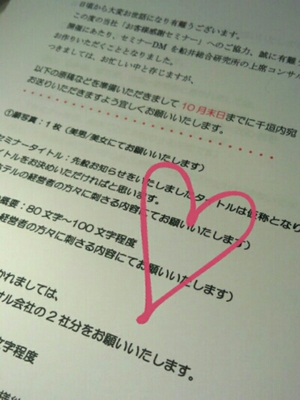 日頃から大変お世話になり有難うございます。
この度の当社「お客様感謝セミナー」へのご協力、誠に有難う
開催にあたり、セミナーDMを船井総合研究所の上席コンサ
お作りいただくこととなりました。
つきましては、お忙しい中と存じますが、
以下の原稿などを準備いただきまして10月末日までに千垣内宛
お送りいただきますよう宜しくお願いいたします。
①顔写真：1枚（美男/美女にてお願いいたします）
セミナータイトル：先般お知らせをいたしましたタイトルは仮称となり
イトルをお決めいただければと思います。
テルの経営者の方々に刺さる内容にてお願いいたします）
概要：80文字～100文字程度
経営者の方々に刺さる内容にてお願いいたします）
かれましては、
オル会社の2社分をお願いいたします。
文字程度